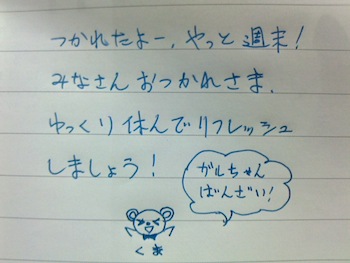 つかれたよー、やっと週末！
みなさんおつかれさま、
ゆっくり休んでリフレッシュ
しましょう！
ガルちゃん
ばんざい！
くま